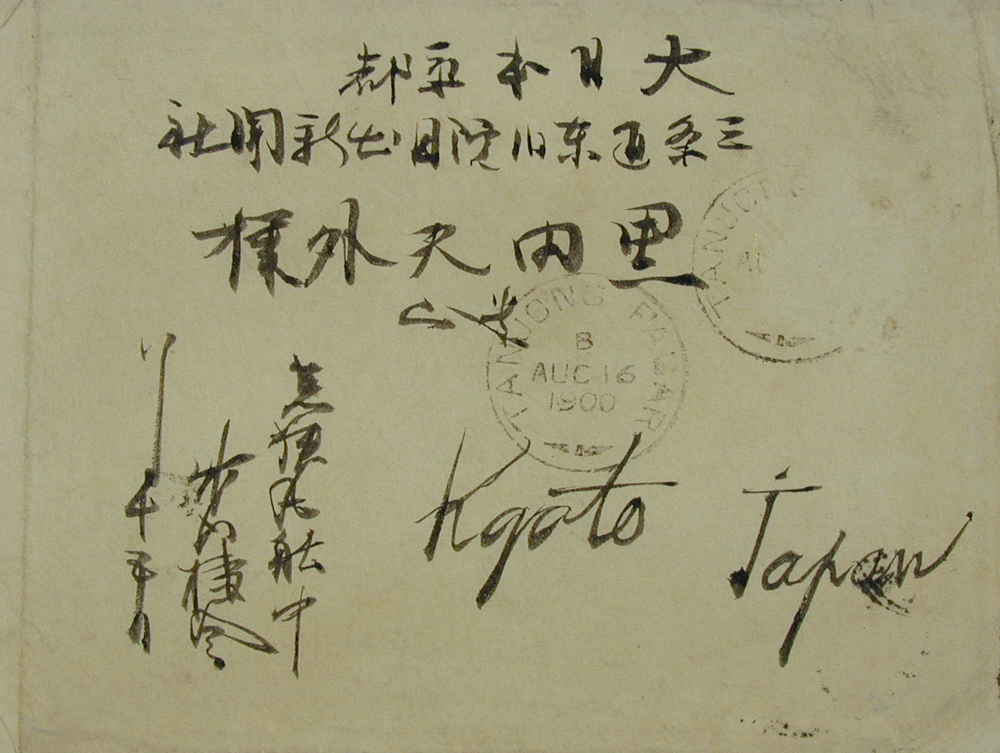 大日本京都
三条通東洞院日出新聞社
黒田天外様
TANJONG PAGAR
B
AUG 16
1900
TANJONG
Kyoto Japan
若狭丸船中
竹内棲鳳